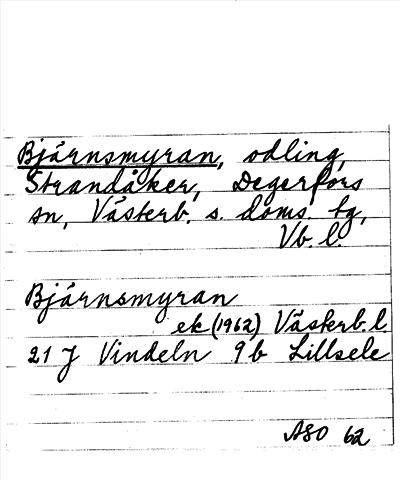 Bjärnsmyran, odling,
Strandåker, Degerfors
sn, Västerb. s. doms. tg,
Vb. l.
Bjärnsmyran
ek (1962) Västerb. l
21 J Vindeln 9 b Lillsele
ASO 62